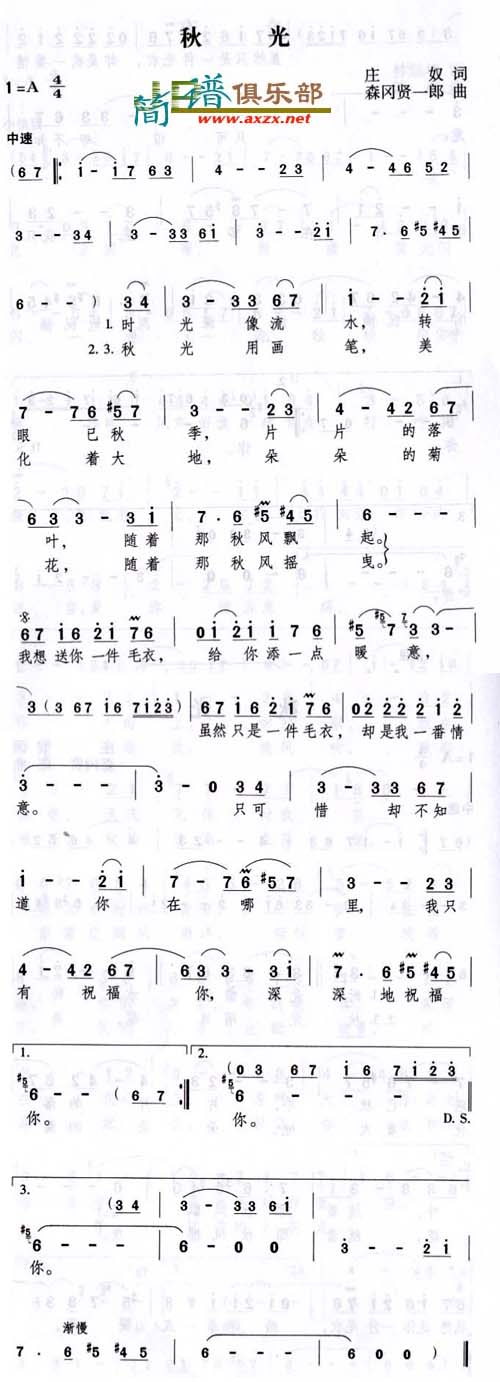 秋 光
1=A 4/4
简谱俱乐部
www.axzx.net
庄 奴 词
森冈贤一郎 曲
中速
(6 7 ‖: i - i 7 6 3 | 4 - - 2 3 | 4 - 4 6 5 2 |
3 - - 3 4 | 3 - 3 3 6 i | 3 - - 2 i | 7 . 6 5 #4 5 |
6 - - ) 3 4 | 3 - 3 3 6 7 | i - - 2 i |
1. 时 光 像流 水, 转
2. 3. 秋 光 用画 笔, 美
7 - 7 6 #5 7 | 3 - - 2 3 | 4 - 4 2 6 7 |
眼 已秋 季, 片 片 的落
化 着大 地, 朵 朵 的菊
6 3 3 - 3 i | 7 . 6 #5 #4 5 | 6 - - -
叶, 随着 那秋风飘 起。
花, 随着 那秋风摇 曳。
6 7 i 6 2 i 7 6 | 0 i 2 i i 7 6 | #5 7 3 3 -
我想送你一件毛衣, 给你添一点 暖 意,
3 (3 6 7 i 6 7 i 2 3) | 6 7 i 6 2 i 7 6 | 0 2 2 2 2 2 i 2
虽然只是一件毛衣, 却是我一番情
3 - - - | 3 - 0 3 4 | 3 - 3 3 6 7
意。 只可 惜 却不知
i - - 2 i | 7 - 7 6 #5 7 | 3 - - 2 3
道 你 在 哪 里, 我只
4 - 4 2 6 7 | 6 3 3 - 3 i | 7 . 6 #5 #4 5
有 祝福 你, 深 深 地祝福
1. 2.
(0 3 6 7 i 6 7 i 2 3)
6 - - (6 7 :‖ 6 - - -
你。 你。 D.S.
3.
(3 4 3 - 3 3 6 i
6 - - - | 6 - 0 0 | 3 - - 2 i
你。
渐慢
7 . 6 #5 #4 5 | 6 - - - | 6 0 0 ) ‖